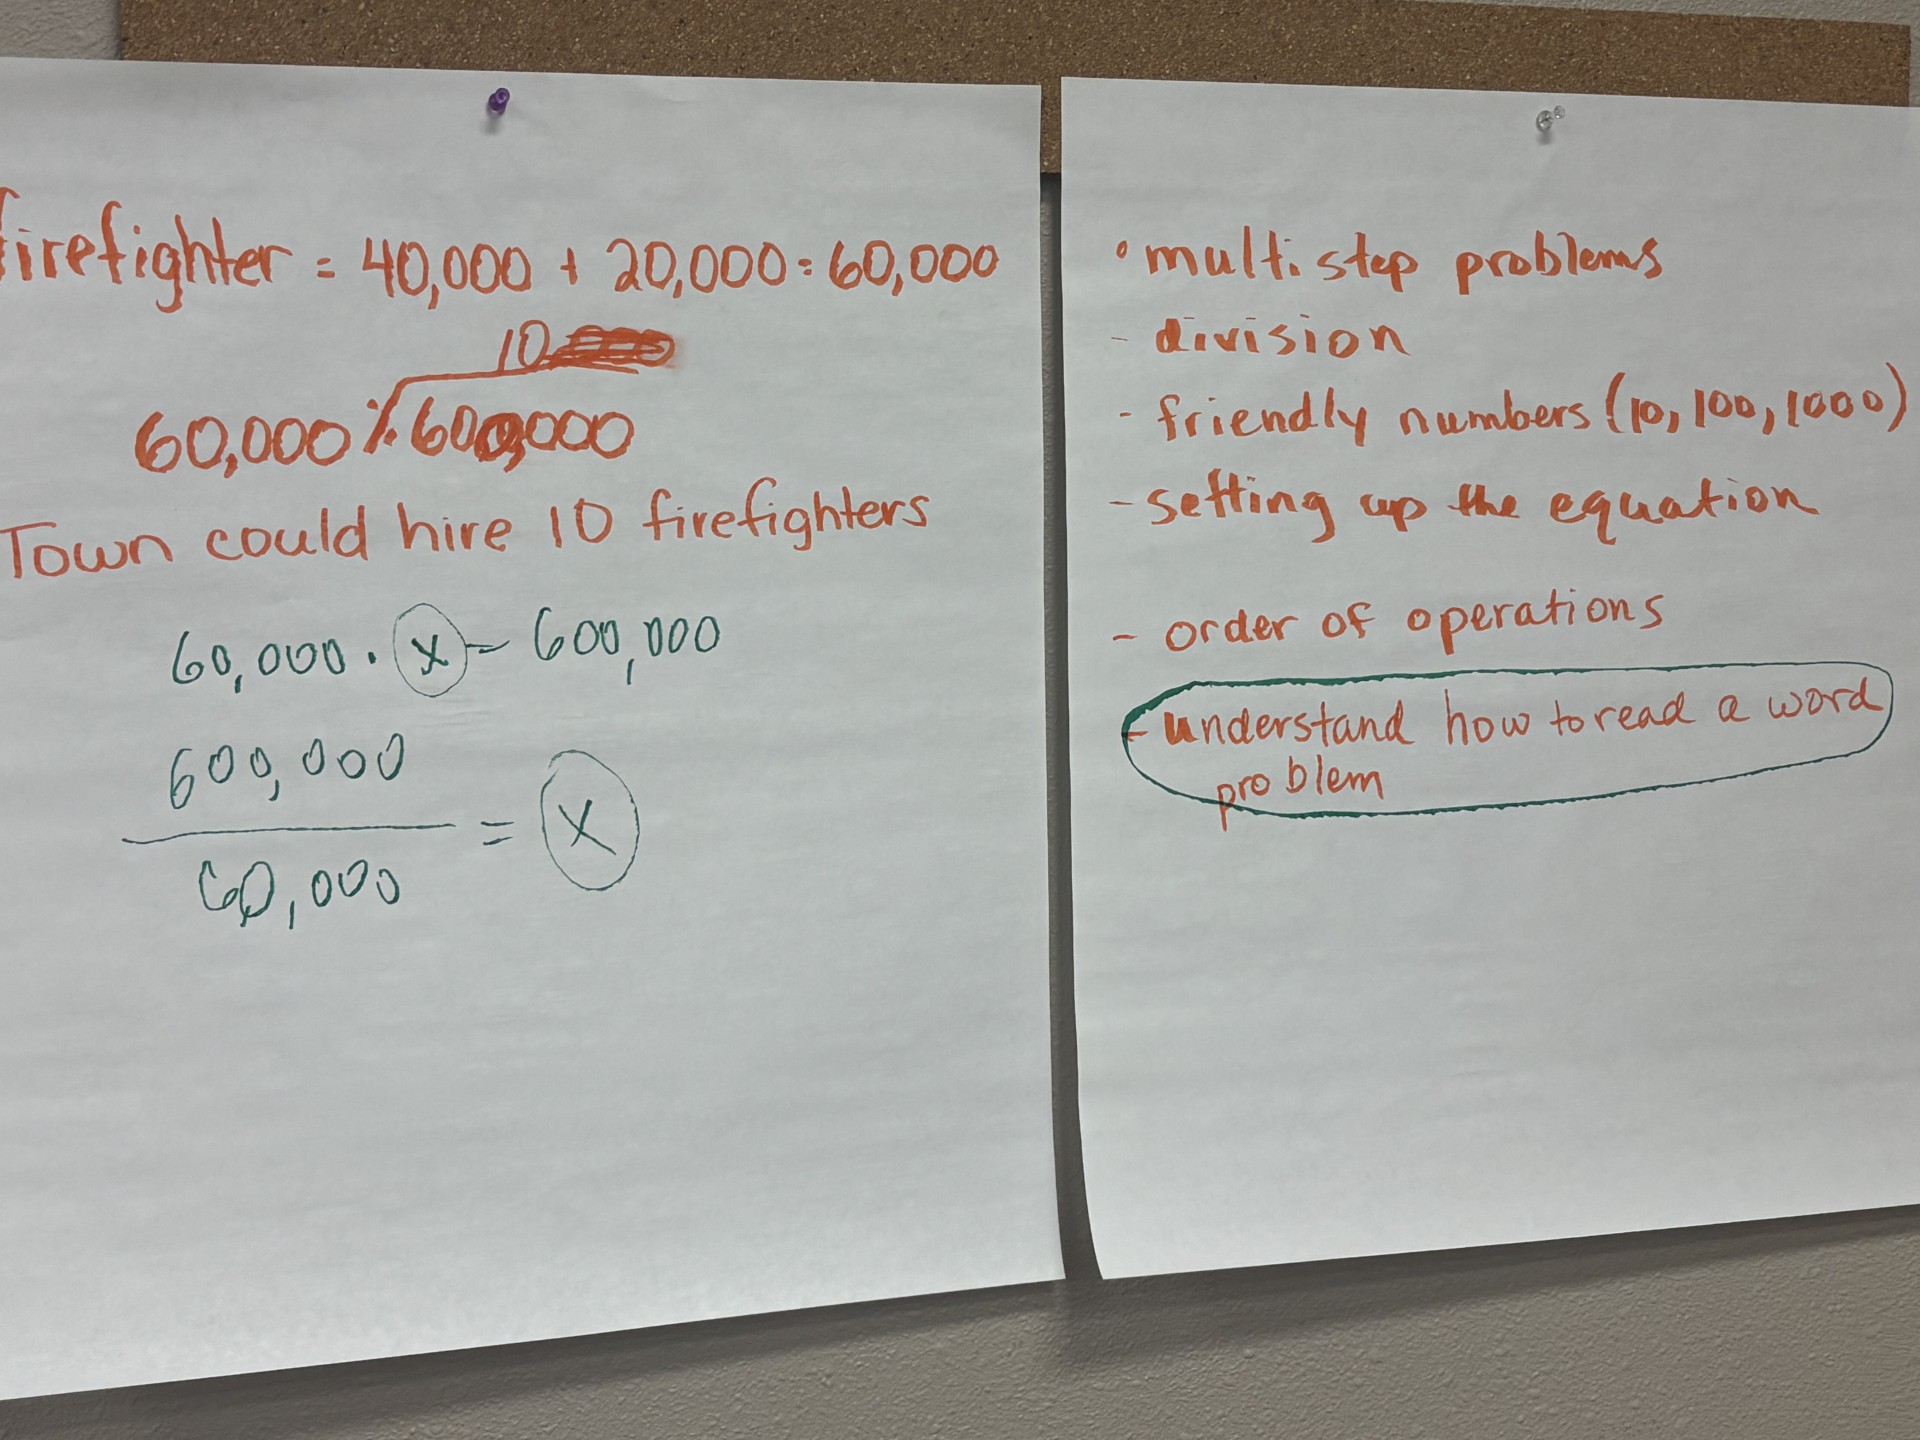 firefighter = 40,000 + 20,000 = 60,000
10
60,000 % 600,000
Town could hire 10 firefighters
60,000 · x = 600,000
600,000
60,000
= x
• multi step problems
- division
- friendly numbers (10, 100, 1000)
- setting up the equation
- order of operations
- understand how to read a word
problem